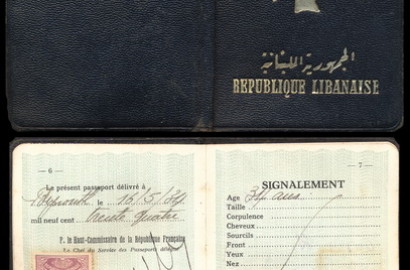 الجمهورية اللبنانية
REPUBLIQUE LIBANAISE
— 6 —
Le présent passeport délivré à
Beyrouth le 16/5/34
mil neuf cent trente quatre
P. le Haut-Commissaire de la République Française
Le Chef du Service des Passeports délégué
— 7 —
SIGNALEMENT
Age 34 ans
Taille
Corpulence
Cheveux
Sourcils
Front
Yeux
Nez